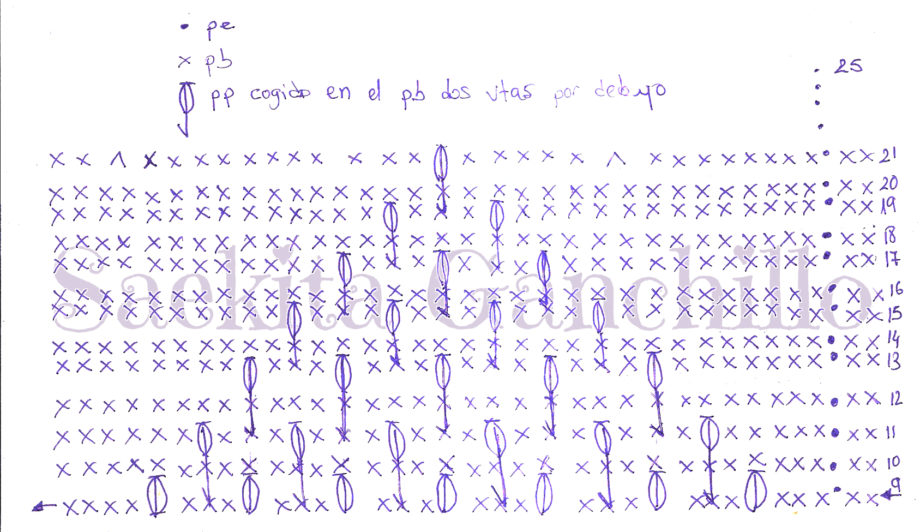 pe
pb
pp cogido en el pb dos vtas por debajo
25
21
20
19
18
17
Saekita Ganchillo
16
15
14
13
12
11
10
9